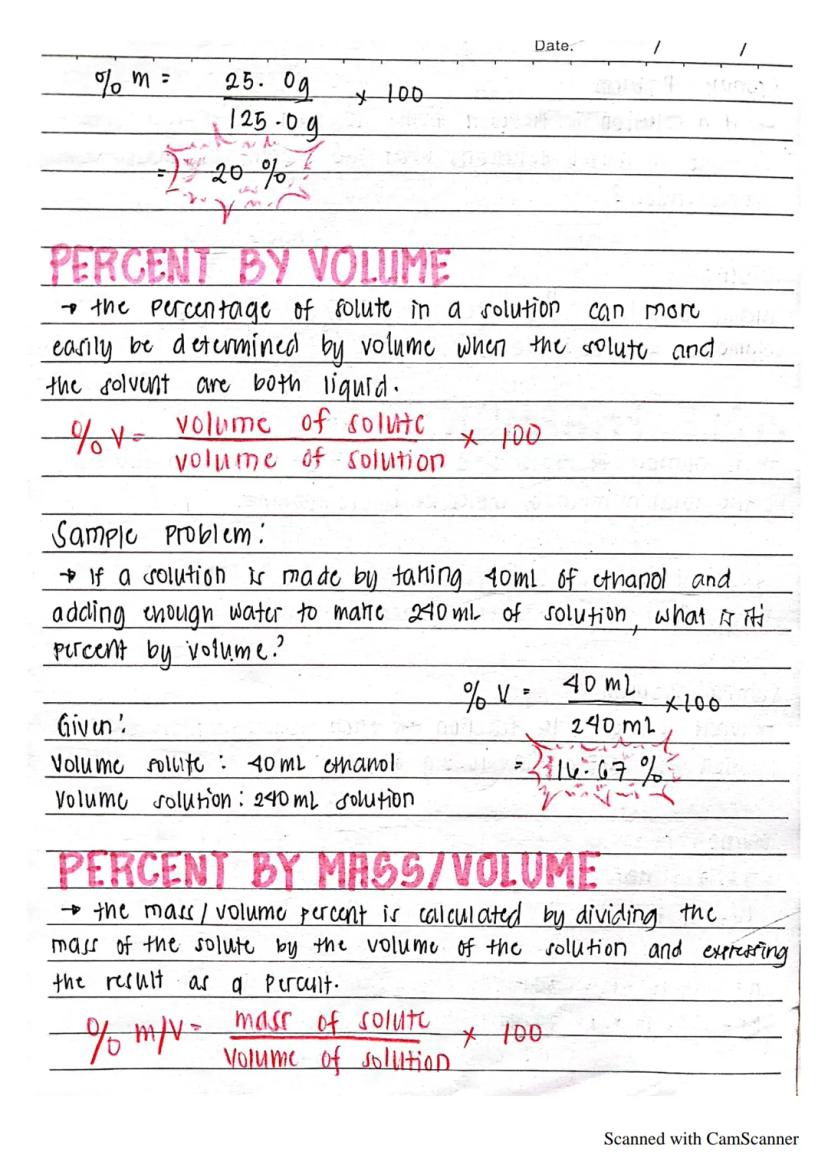 Date. / /
% m = 25.0g / 125.0g × 100
= 20 %
PERCENT BY VOLUME
→ the percentage of solute in a solution can more
easily be determined by volume when the solute and
the solvent are both liquid.
% V = volume of solute / volume of solution × 100
Sample Problem:
→ If a solution is made by taking 40ml of ethanol and
adding enough water to make 240 mL of solution, what is its
percent by volume?
% V = 40 mL / 240 mL ×100
Given:
Volume solute : 40 mL ethanol
= 16.67 %
Volume solution : 240 mL solution
PERCENT BY MASS/VOLUME
→ the mass / volume percent is calculated by dividing the
mass of the solute by the volume of the solution and expressing
the result as a percent.
% m/V = mass of solute / Volume of solution × 100
Scanned with CamScanner